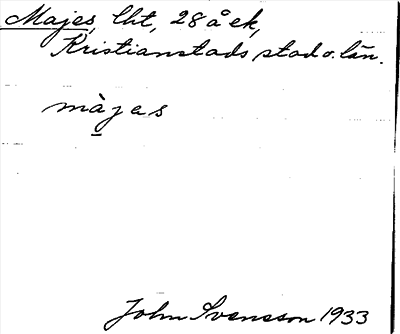 Majes, lht, 28 å ek,
Kristianstads stad o. län.
màjas
John Svensson 1933